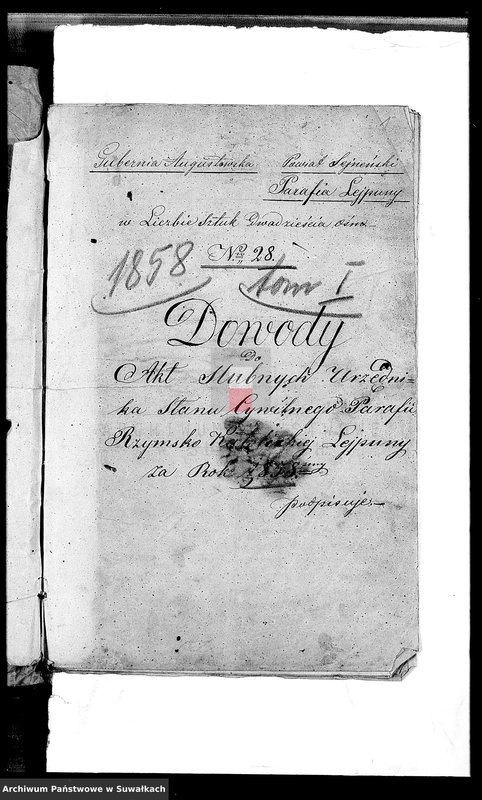 1
Gubernia Augustowska Powiat Sejneński
Parafia Lejpuny
w Liczbie Sztuk Dwadzieścia ośm
No 28.
1858 tom I
Dowody
Do
Akt Slubnych Urzędni=
ka Stanu Cywilnego Parafii
Rzymsko Katolickiej Lejpuny
za Rok 1858
podpisuje
Archiwum Państwowe w Suwałkach